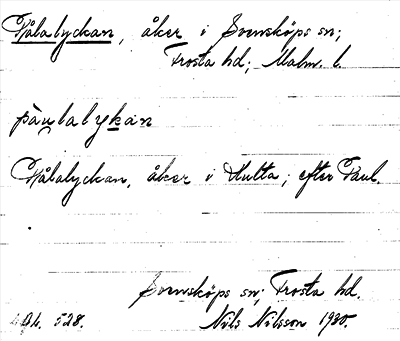 Pålalyckan, åker i Svensköps sn;
Frosta hd; Malm. l.
pàulalykan
Pålalyckan, åker i Hutta; efter Paul.
Svensköps sn; Frosta hd.
528. Nils Nilsson 1930.